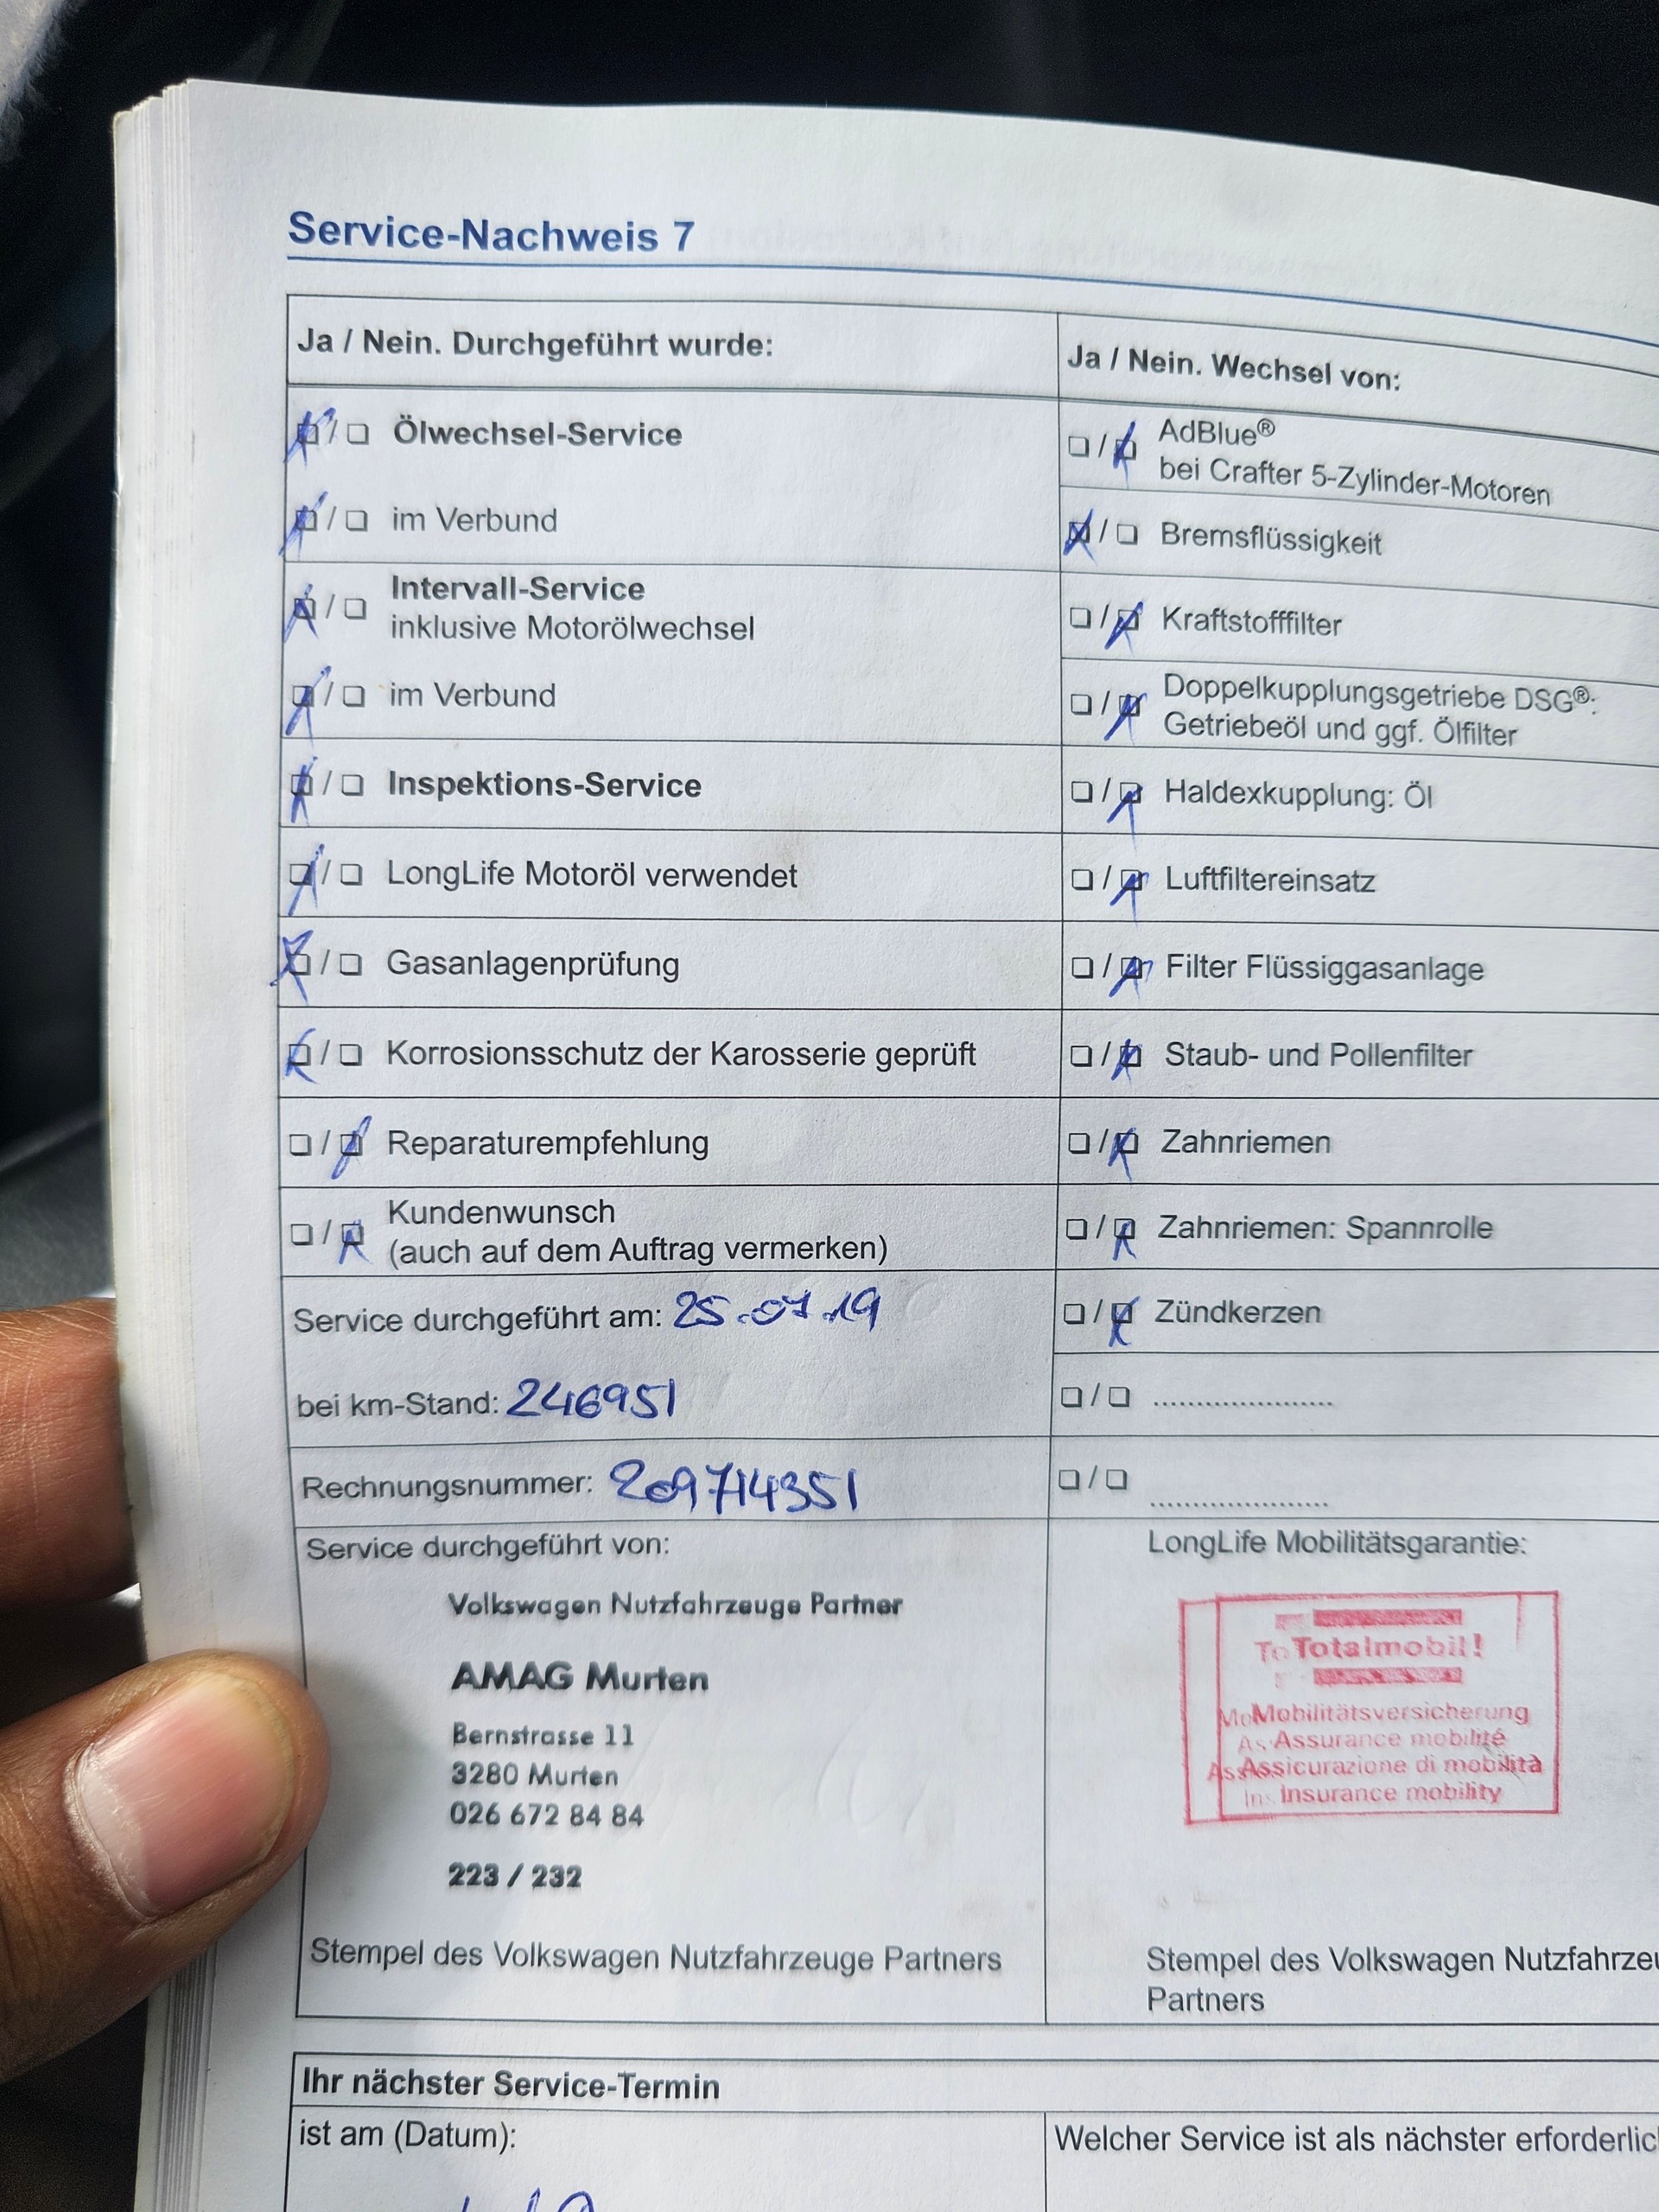 Service-Nachweis 7
Ja / Nein. Durchgeführt wurde:
Ölwechsel-Service
im Verbund
Intervall-Service
inklusive Motorölwechsel
im Verbund
Inspektions-Service
LongLife Motoröl verwendet
Gasanlagenprüfung
Korrosionsschutz der Karosserie geprüft
Reparaturempfehlung
Kundenwunsch
(auch auf dem Auftrag vermerken)
Service durchgeführt am: 25.07.19
bei km-Stand: 246951
Rechnungsnummer: 209714351
Service durchgeführt von:
Volkswagen Nutzfahrzeuge Partner
AMAG Murten
Bernstrasse 11
3280 Murten
026 672 84 84
223 / 232
Stempel des Volkswagen Nutzfahrzeuge Partners
Ja / Nein. Wechsel von:
AdBlue®
bei Crafter 5-Zylinder-Motoren
Bremsflüssigkeit
Kraftstofffilter
Doppelkupplungsgetriebe DSG®:
Getriebeöl und ggf. Ölfilter
Haldexkupplung: Öl
Luftfiltereinsatz
Filter Flüssiggasanlage
Staub- und Pollenfilter
Zahnriemen
Zahnriemen: Spannrolle
Zündkerzen
LongLife Mobilitätsgarantie:
Totalmobil!
Mobilitätsversicherung
Assurance mobilité
Assicurazione di mobilità
Insurance mobility
Stempel des Volkswagen Nutzfahrzeu
Partners
Ihr nächster Service-Termin
ist am (Datum):
Welcher Service ist als nächster erforderlic